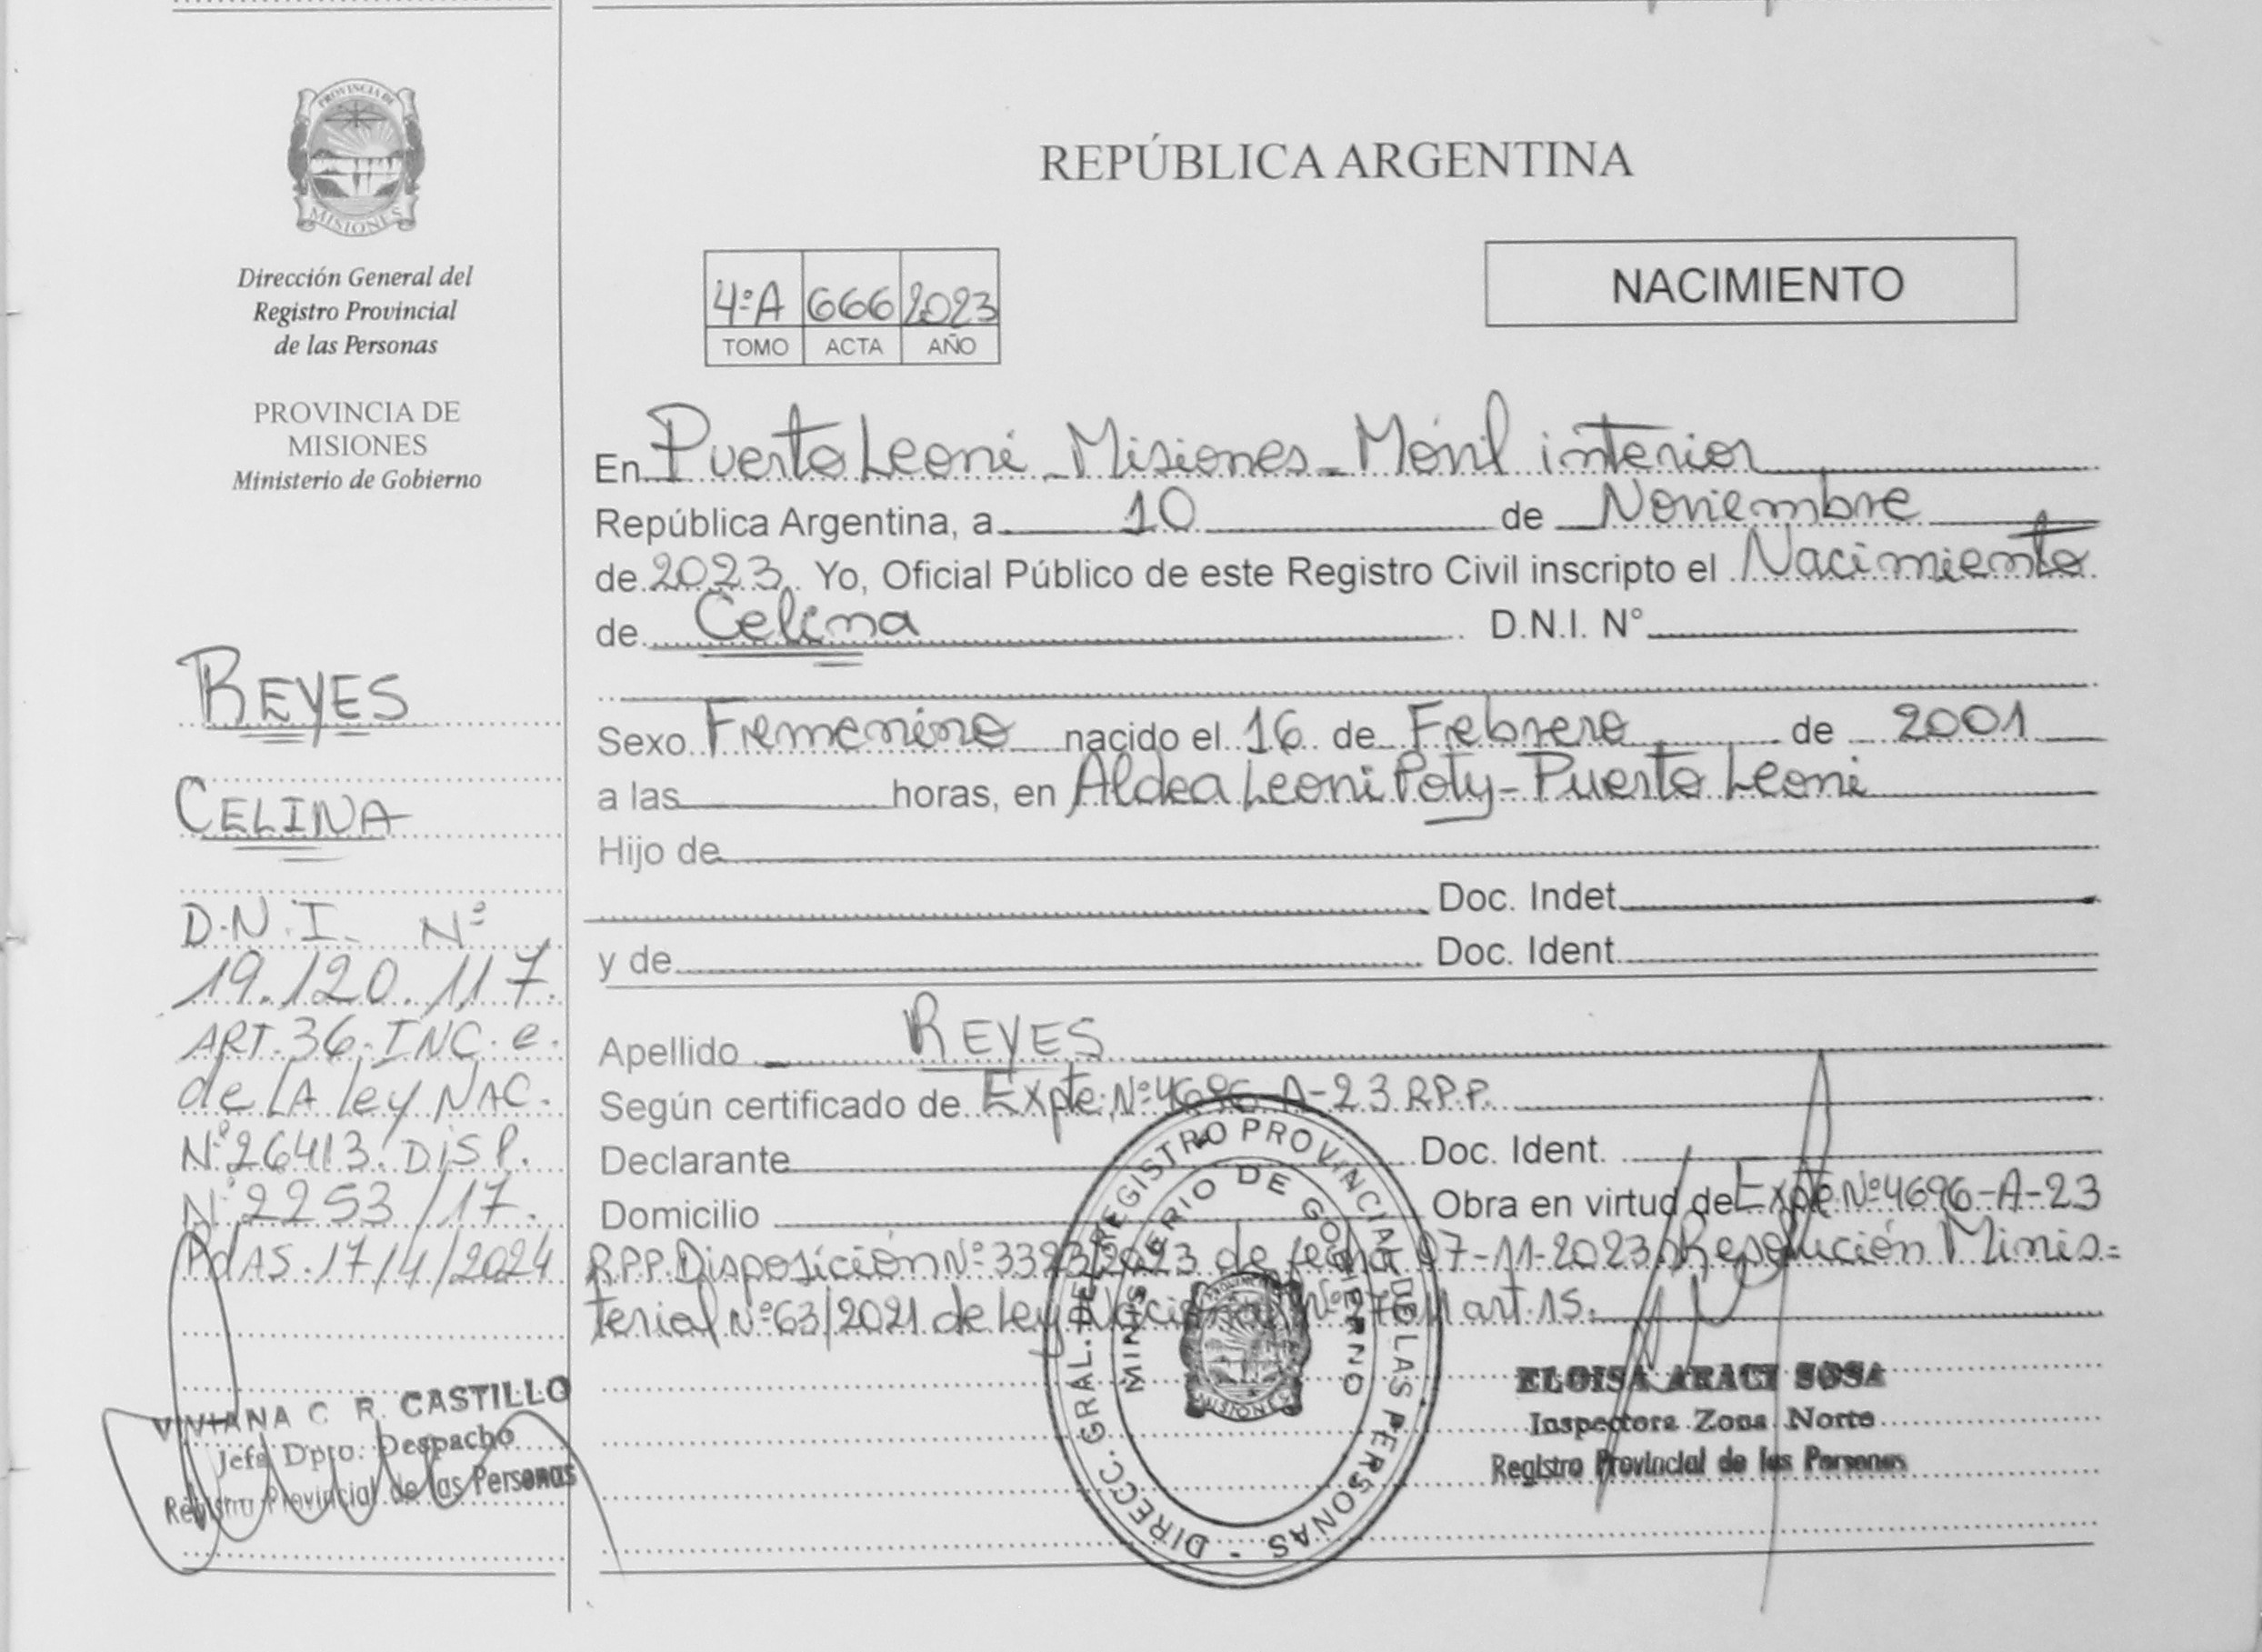 PROVINCIA DE
MISIONES
Dirección General del
Registro Provincial
de las Personas
PROVINCIA DE
MISIONES
Ministerio de Gobierno
REYES
CELINA
D.N.I. Nº
19.120.117.
ART.36.INC.e.
de LA ley NAC.
Nº26413.DISP.
Nº2253/17.
PdAS.17/4/2024
VIVIANA C. R. CASTILLO
Jefa Dpto. Despacho
Registro Provincial de las Personas
REPÚBLICA ARGENTINA
4ºA 666 2023
TOMO ACTA AÑO
NACIMIENTO
En Puerto Leoni - Misiones - Móvil interior
República Argentina, a 10 de Noviembre
de 2023. Yo, Oficial Público de este Registro Civil inscripto el Nacimiento
de Celina D.N.I. N°
Sexo Femenino nacido el 16 de Febrero de 2001
a las horas, en Aldea Leoni Poty - Puerto Leoni
Hijo de
Doc. Indet.
y de Doc. Ident.
Apellido REYES
Según certificado de Expte. Nº4696-A-23 R.P.P.
Declarante Doc. Ident.
Domicilio Obra en virtud de Expte Nº4696-A-23
R.P.P. Disposición Nº 3323/2023 de fecha 07-11-2023. Resolución Minis=
terial Nº63/2021 de Ley Nacional Nº art.15.
DIRECC. GRAL. DEL REGISTRO PROVINCIAL DE LAS PERSONAS -
MINISTERIO DE GOBIERNO
MISIONES
ELOISA ARACI SOSA
Inspectora Zona Norte
Registro Provincial de las Personas